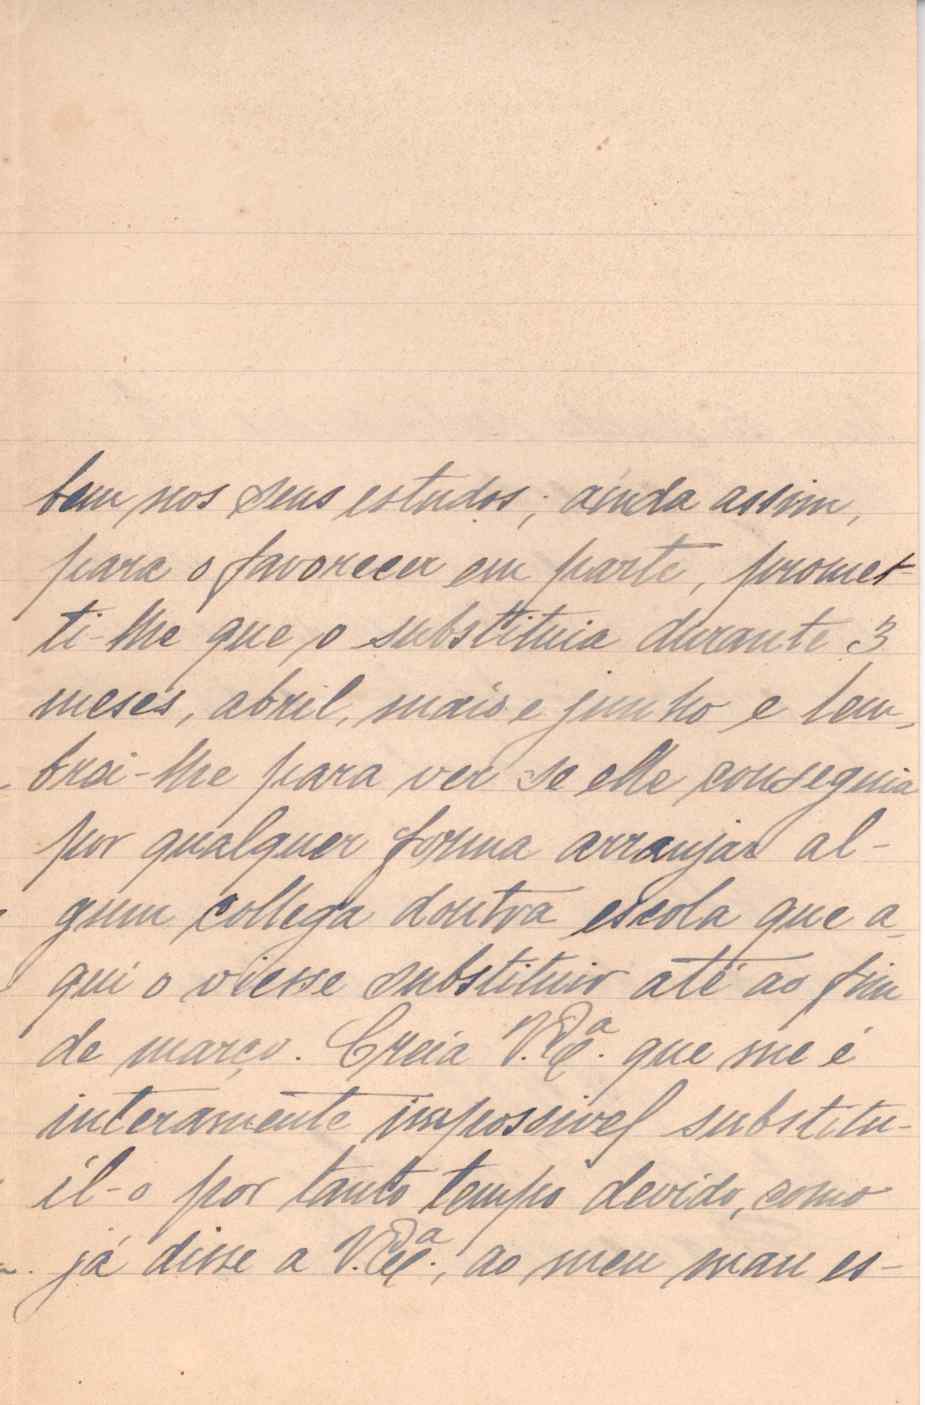 bem nos seus estudos; ainda assim,
para o favorecer em parte, promet-
ti-lhe que o substituia durante 3
meses, abril, maio e junho e lem-
brei-lhe para ver se elle conseguia
por qualquer forma arranjar al-
gum collega doutra escola que a-
qui o viesse substituir até ao fim
de março. Creia V. Exª. que me é
interamente impossivel substitu-
il-o por tanto tempo devido, como
já disse a V. Exª., ao meu mau es-